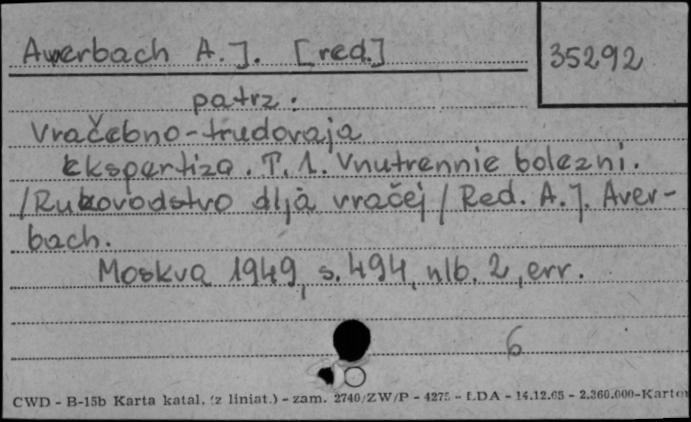 Awerbach A. J. [red.]
35292
patrz:
Vračebno-trudovaja
ekspertiza. T. 1. Vnutrennie bolezni.
/Rukovodstvo dlja vračej/ Red. A. J. Aver-
bach.
Moskva 1949, s. 494, nlb. 2, err.
6
CWD - B-15b Karta katal. (z liniat.) - zam. 2740/ZW/P - 4275 - LDA - 14.12.65 - 2.360.000-Karto